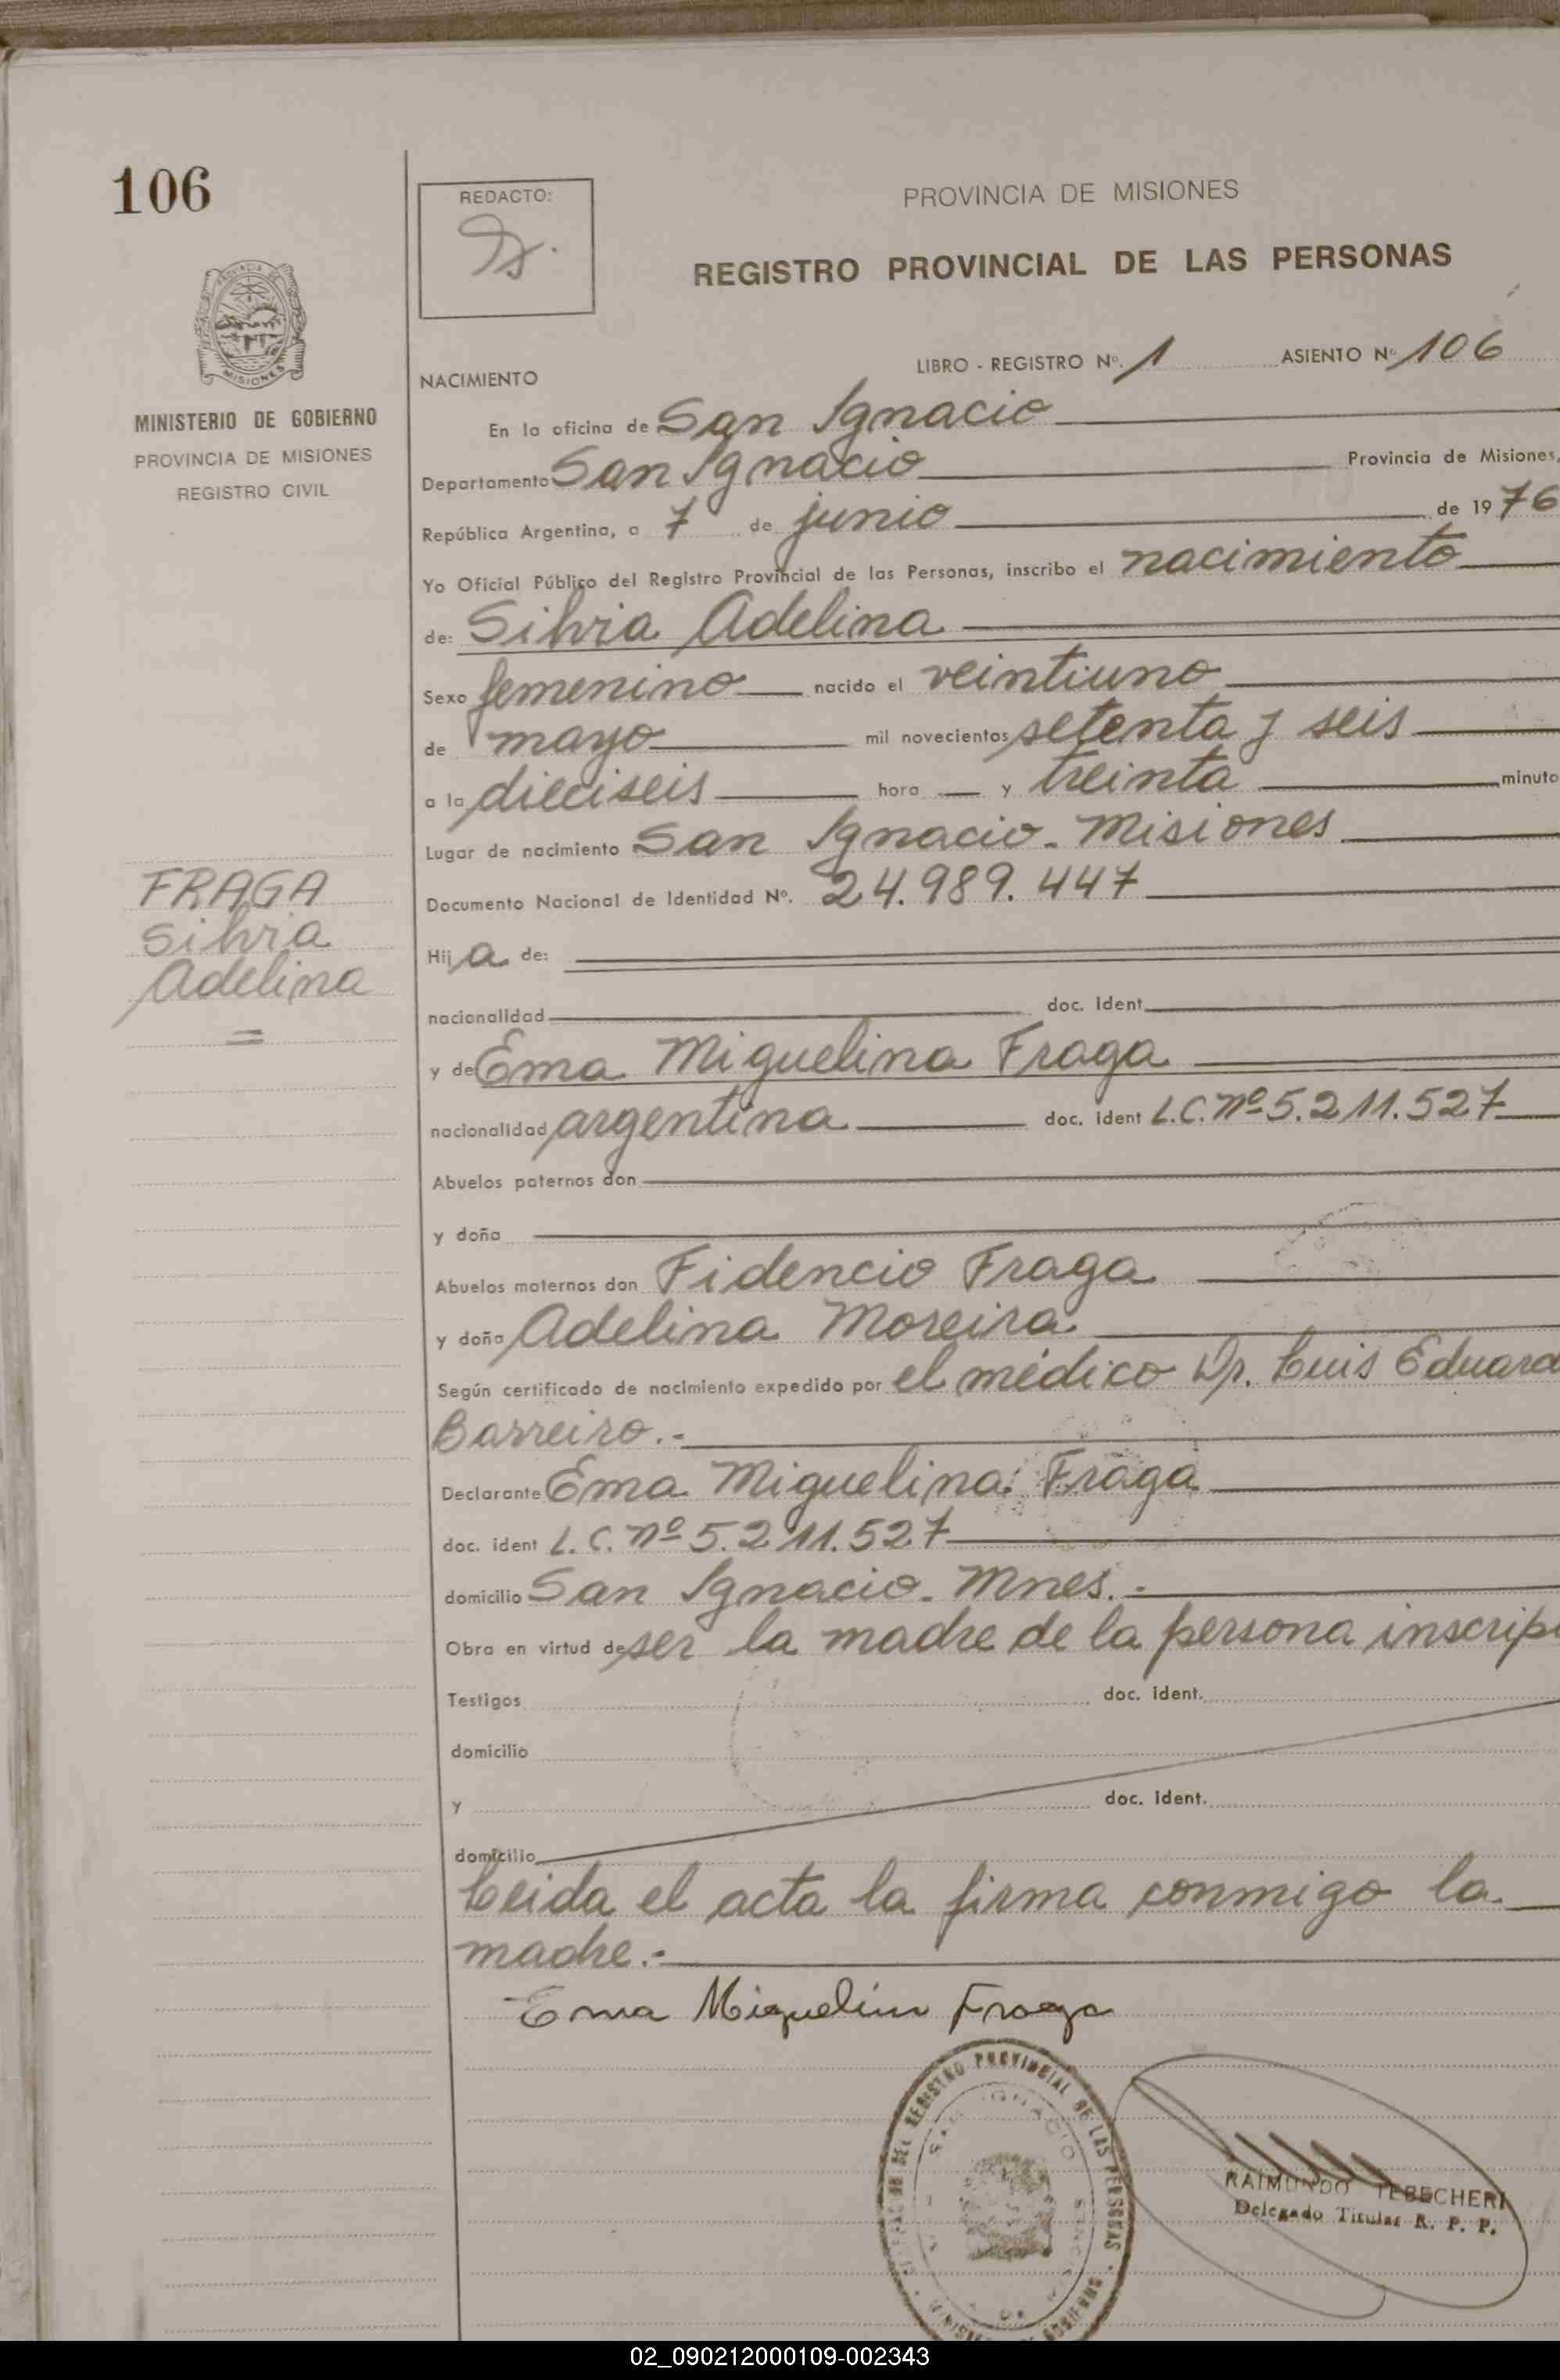 106
REDACTO:
PROVINCIA DE MISIONES
REGISTRO PROVINCIAL DE LAS PERSONAS
MISIONES
MINISTERIO DE GOBIERNO
PROVINCIA DE MISIONES
REGISTRO CIVIL
LIBRO - REGISTRO Nº. 1 ASIENTO Nº 106
NACIMIENTO
En la oficina de San Ignacio
Departamento San Ignacio Provincia de Misiones,
República Argentina, a 7 de junio de 1976
Yo Oficial Público del Registro Provincial de las Personas, inscribo el nacimiento
de: Silvia Adelina
Sexo femenino nacido el veintiuno
de mayo mil novecientos setenta y seis
a la dieciseis hora y treinta minuto
Lugar de nacimiento San Ignacio - Misiones
Documento Nacional de Identidad Nº. 24.989.447
FRAGA
Silvia
Adelina
Hija de:
nacionalidad doc. ident.
y de Ema Miguelina Fraga
nacionalidad argentina doc. ident L.C. nº 5.211.527
Abuelos paternos don
y doña
Abuelos maternos don Fidencio Fraga
y doña Adelina Moreira
Según certificado de nacimiento expedido por el médico Dr. Luis Eduard
Barreiro.-
Declarante Ema Miguelina Fraga
doc. ident L.C. nº 5.211.527
domicilio San Ignacio - Mnes.-
Obra en virtud de ser la madre de la persona inscrip
Testigos doc. ident.
domicilio
y doc. ident.
domicilio
Leida el acta la firma conmigo la
madre.-
Ema Miguelina Fraga
REGISTRO PROVINCIAL DE LAS PERSONAS
SAN IGNACIO
RAIMUNDO TEBECHERI
Delegado Titular R. P. P.
02_090212000109-002343